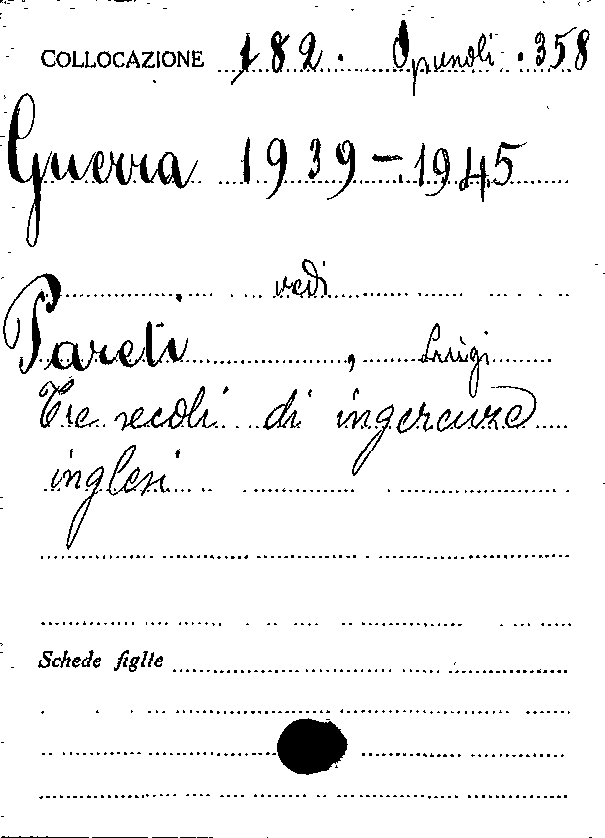 COLLOCAZIONE 182. Opuscoli. 358
Guerra 1939-1945
vedi
Pareti, Luigi
Tre secoli di ingerenze
inglesi
Schede figlie